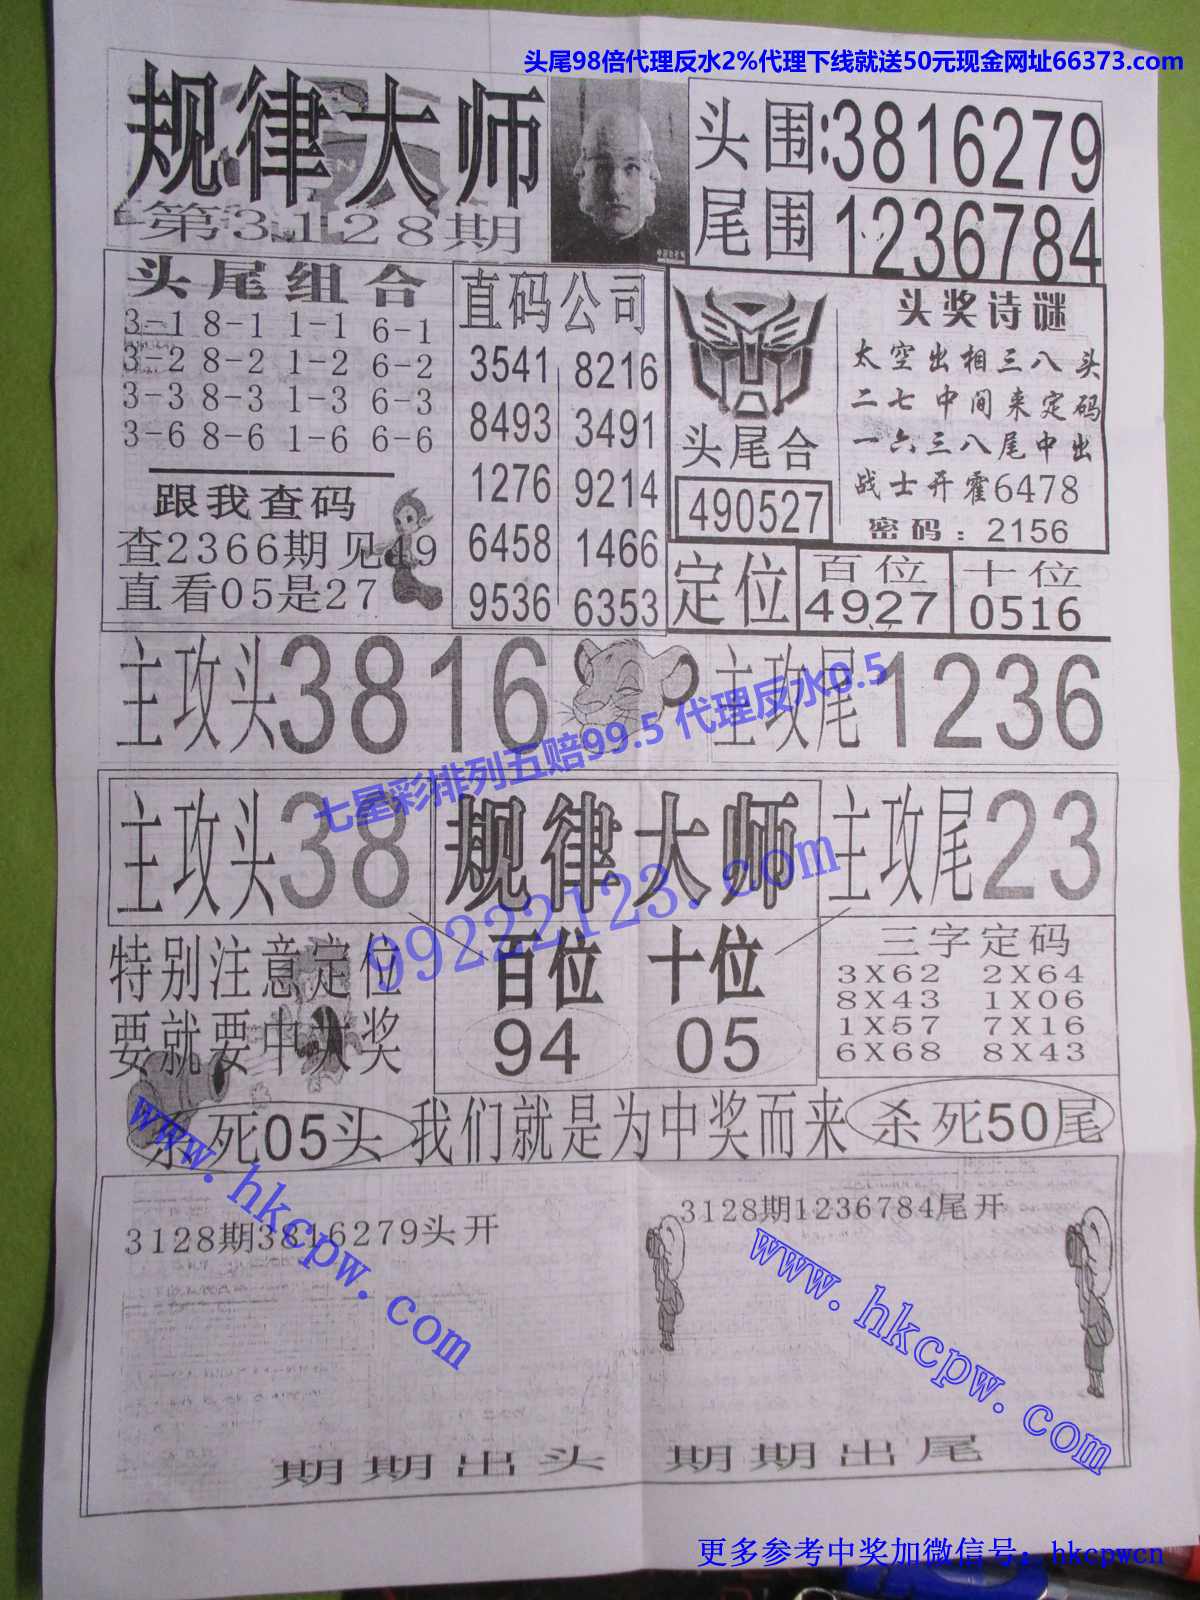 头尾98倍代理反水2%代理下线就送50元现金网址66373.com
规律大师
第3128期
头围:3816279
尾围 1236784
头尾组合
3-1 8-1 1-1 6-1
3-2 8-2 1-2 6-2
3-3 8-3 1-3 6-3
3-6 8-6 1-6 6-6
跟我查码
查2366期见49
直看05是27
直码公司
3541 8216
8493 3491
1276 9214
6458 1466
9536 6353
头尾合
490527
头奖诗谜
太空出相三八头
二七中间来定码
一六三八尾中出
战士开霍6478
密码：2156
定位
百位
4927
十位
0516
主攻头3816
主攻尾1236
七星彩排列五赔99.5 代理反水0.5
主攻头38
规律大师
主攻尾23
99222123.com
特别注意定位
要就要中大奖
百位 十位
94 05
三字定码
3X62 2X64
8X43 1X06
1X57 7X16
6X68 8X43
杀死05头
我们就是为中奖而来
杀死50尾
www.hkcpw.com
3128期3816279头开
3128期1236784尾开
www.hkcpw.com
期期出头 期期出尾
更多参考中奖加微信号：hkcpwcn